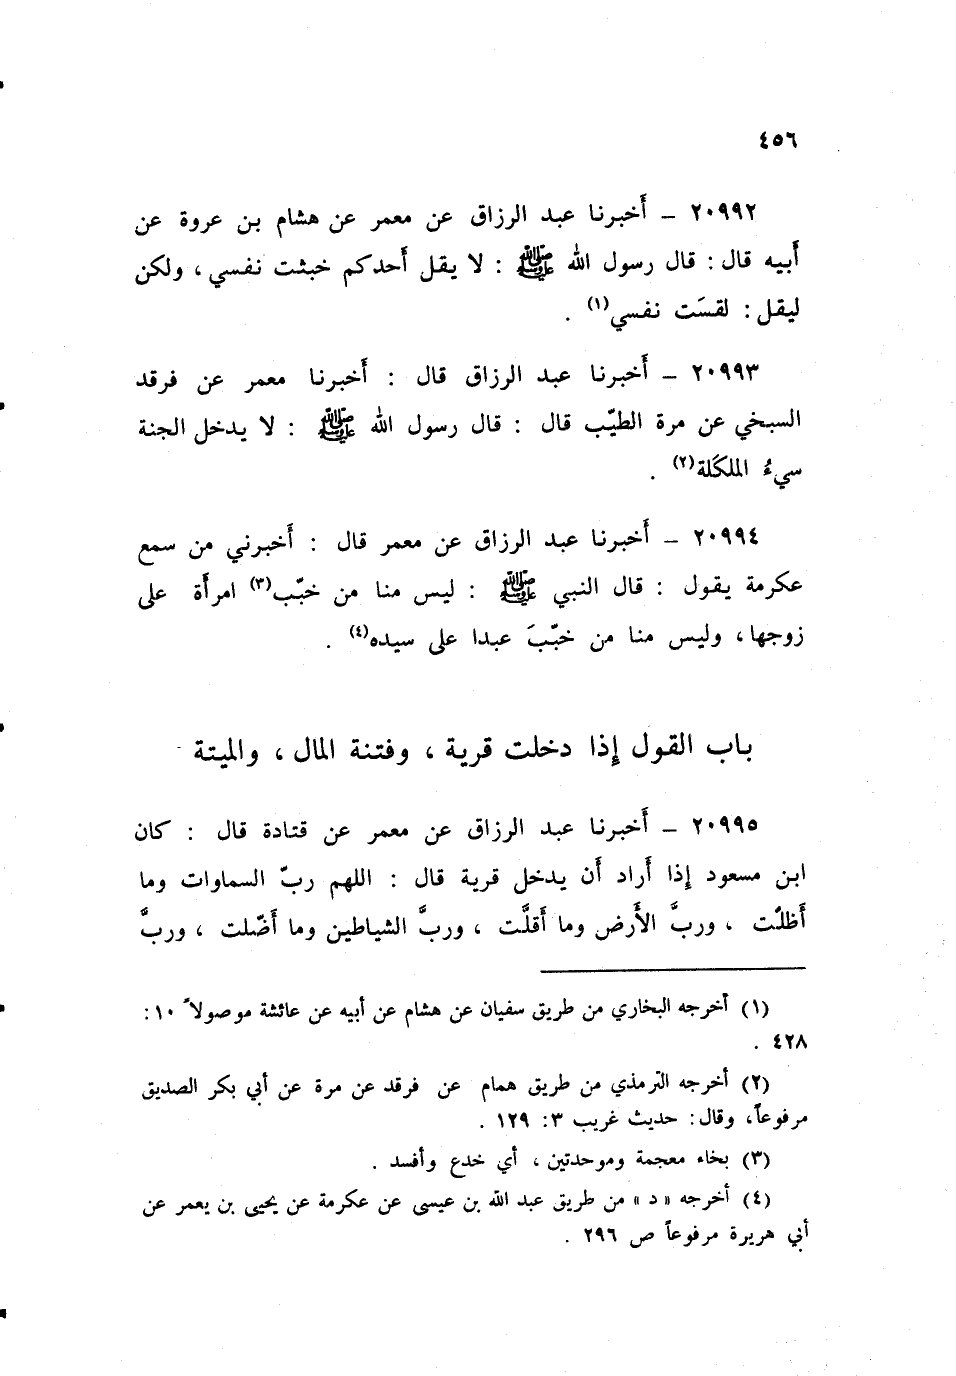 ٤٥٦
٢٠٩٩٢ – أخبرنا عبد الرزاق عن معمر عن هشام بن عروة عن
أبيه قال : قال رسول الله ﷺ : لا يقل أحدكم خبثت نفسي ، ولكن
ليقل : لقسَت نفسي(١) .
٢٠٩٩٣ – أخبرنا عبد الرزاق قال : أخبرنا معمر عن فرقد
السبخي عن مرة الطيّب قال : قال رسول الله ﷺ : لا يدخل الجنة
سيءُ الملَكَة(٢) .
٢٠٩٩٤ – أخبرنا عبد الرزاق عن معمر قال : أخبرني من سمع
عكرمة يقول : قال النبي ﷺ : ليس منا من خبّب(٣) امرأة على
زوجها ، وليس منا من خبّبَ عبدا على سيده(٤) .
باب القول إذا دخلت قرية ، وفتنة المال ، والميتة
٢٠٩٩٥ – أخبرنا عبد الرزاق عن معمر عن قتادة قال : كان
ابن مسعود إذا أراد أن يدخل قرية قال : اللهم ربّ السماوات وما
أظلّت ، وربَّ الأرض وما أقلَّت ، وربَّ الشياطين وما أضّلت ، وربَّ
(١) أخرجه البخاري من طريق سفيان عن هشام عن أبيه عن عائشة موصولاً ١٠ :
٤٢٨ .
(٢) أخرجه الترمذي من طريق همام عن فرقد عن مرة عن أبي بكر الصديق
مرفوعاً ، وقال : حديث غريب ٣ : ١٢٩ .
(٣) بخاء معجمة وموحدتين ، أي خدع وأفسد .
(٤) أخرجه « د » من طريق عبد الله بن عيسى عن عكرمة عن يحيى بن يعمر عن
أبي هريرة مرفوعاً ص ٢٩٦ .